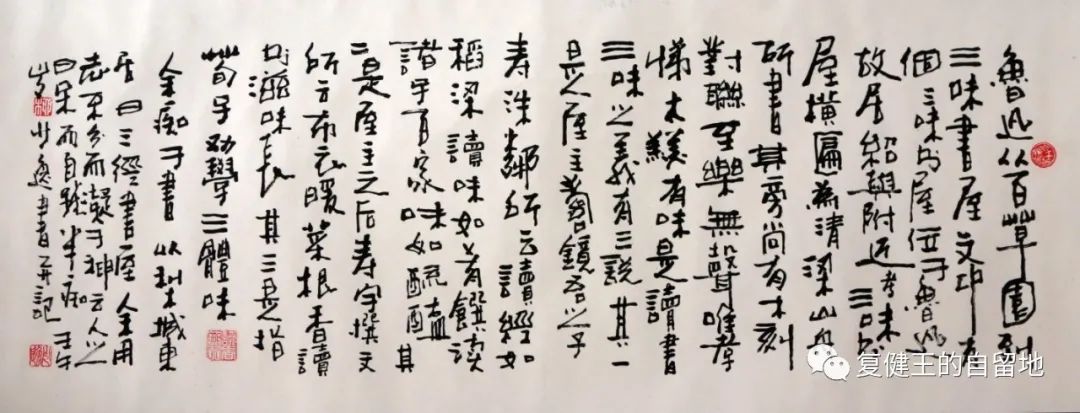 鲁迅从百草園到
三味書屋文中有
個三味書屋位于魯迅
故居紹興附近三味書
屋橫匾為清梁山舟
所書其旁尚有木刻
對聯至樂無聲唯孝
悌太羹有味是讀書
三味之義有三説其一
是屋主壽鏡吾之子
寿洙鄰所云讀經如
稻粱讀味如肴饌讀
諸子百家味如醯醢其
二是屋主之后寿宇撰文
所言布衣暖菜根香讀
書滋味長其三是指
荀子劝學三體味
余痴于書從
居曰三經書屋全用
志不分而凝于神
曰呆而自
書并記
复健王的自留地